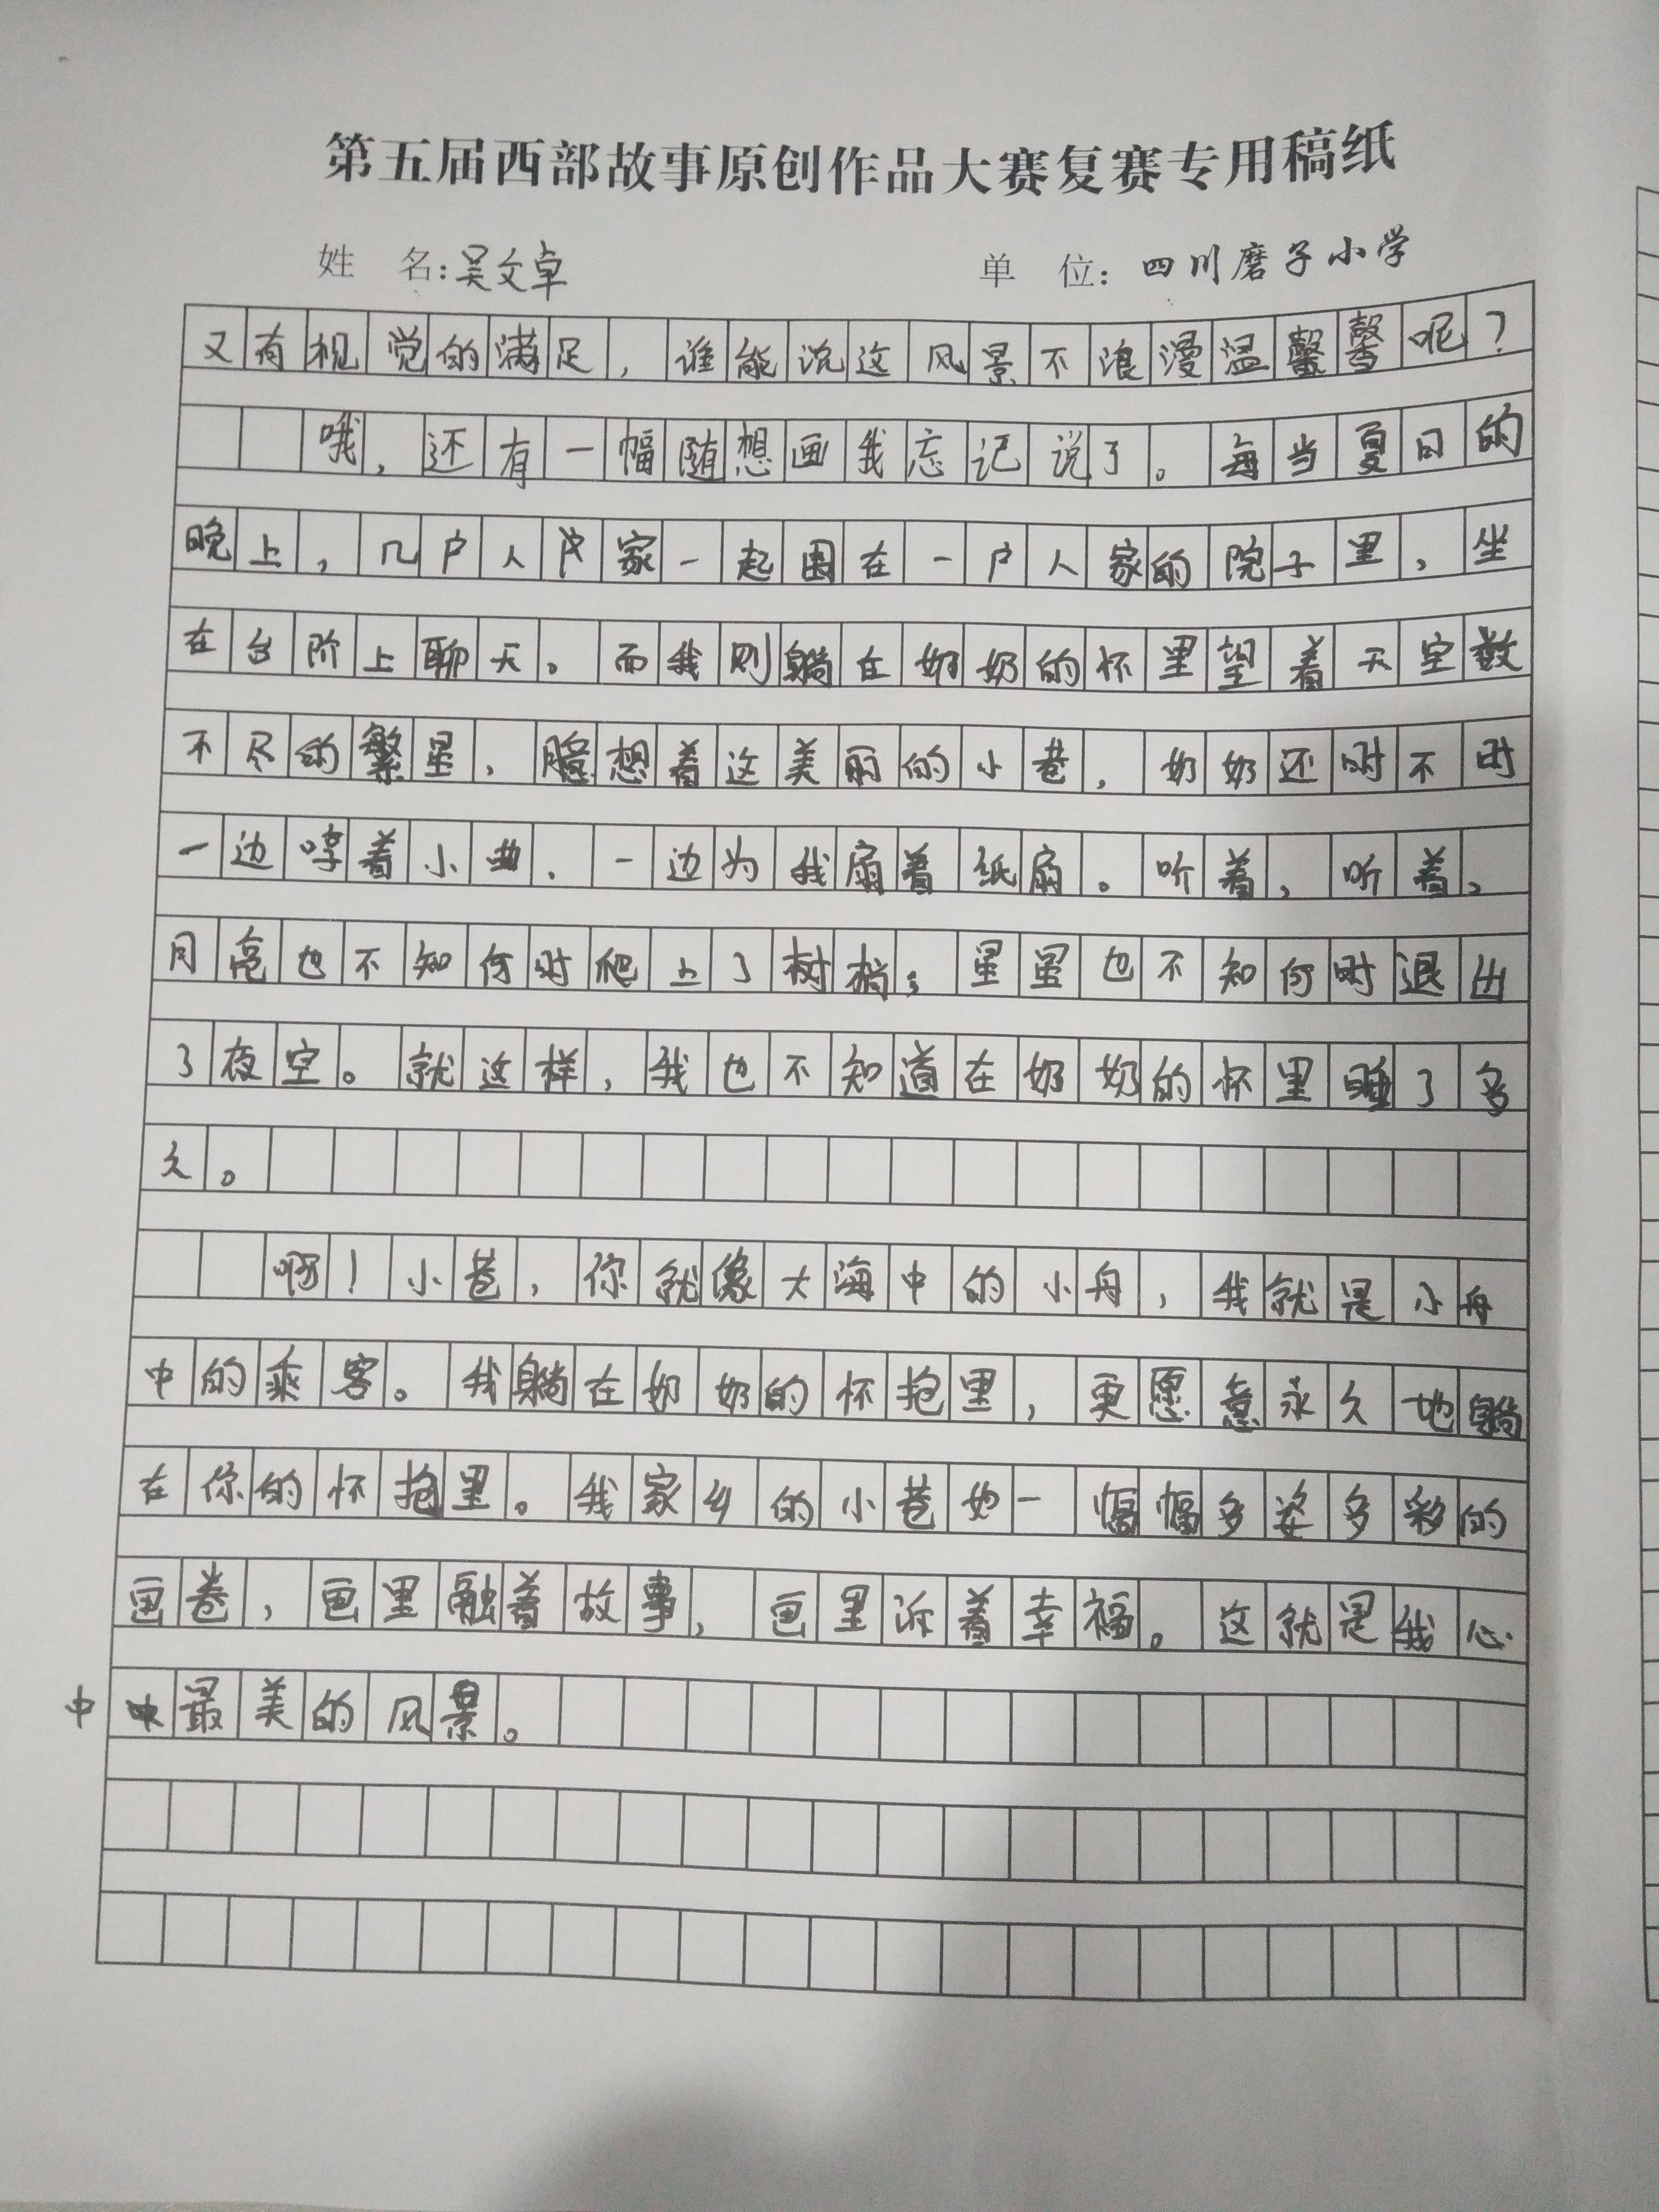 第五届西部故事原创作品大赛复赛专用稿纸
姓 名:吴文卓 单 位:四川磨子小学
又有视觉的满足，谁能说这风景不浪漫温馨呢？
哦，还有一幅随想画我忘记说了。每当夏日的
晚上，几户人家一起围在一户人家的院子里，坐
在台阶上聊天。而我则躺在奶奶的怀里望着天空数
不尽的繁星，臆想着这美丽的小巷，奶奶还时不时
一边哼着小曲，一边为我扇着纸扇。听着，听着，
月亮也不知何时爬上了树梢；星星也不知何时退出
了夜空。就这样，我也不知道在奶奶的怀里睡了多
久。
啊！小巷，你就像大海中的小舟，我就是小舟
中的乘客。我躺在奶奶的怀抱里，更愿意永久地躺
在你的怀抱里。我家乡的小巷如一幅幅多姿多彩的
画卷，画里融着故事，画里诉着幸福。这就是我心
中最美的风景。